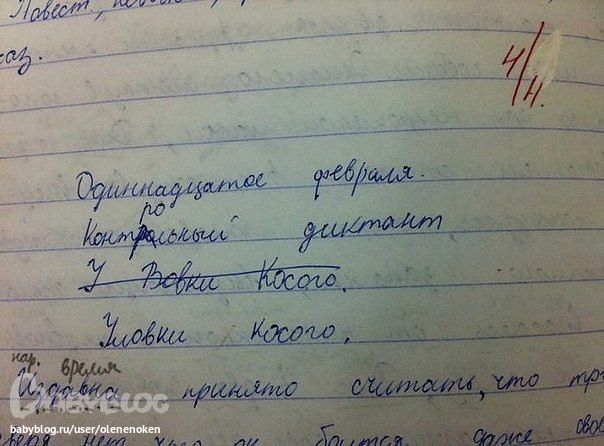 Повест.,
каз.
4/4.
Одиннадцатое февраля.
ро
Контрольный диктант
У Вовки Косого.
Уловки косого.
нар. время
Издавна принято считать, что
BABYBLOG
babyblog.ru/user/olenenoken
даже